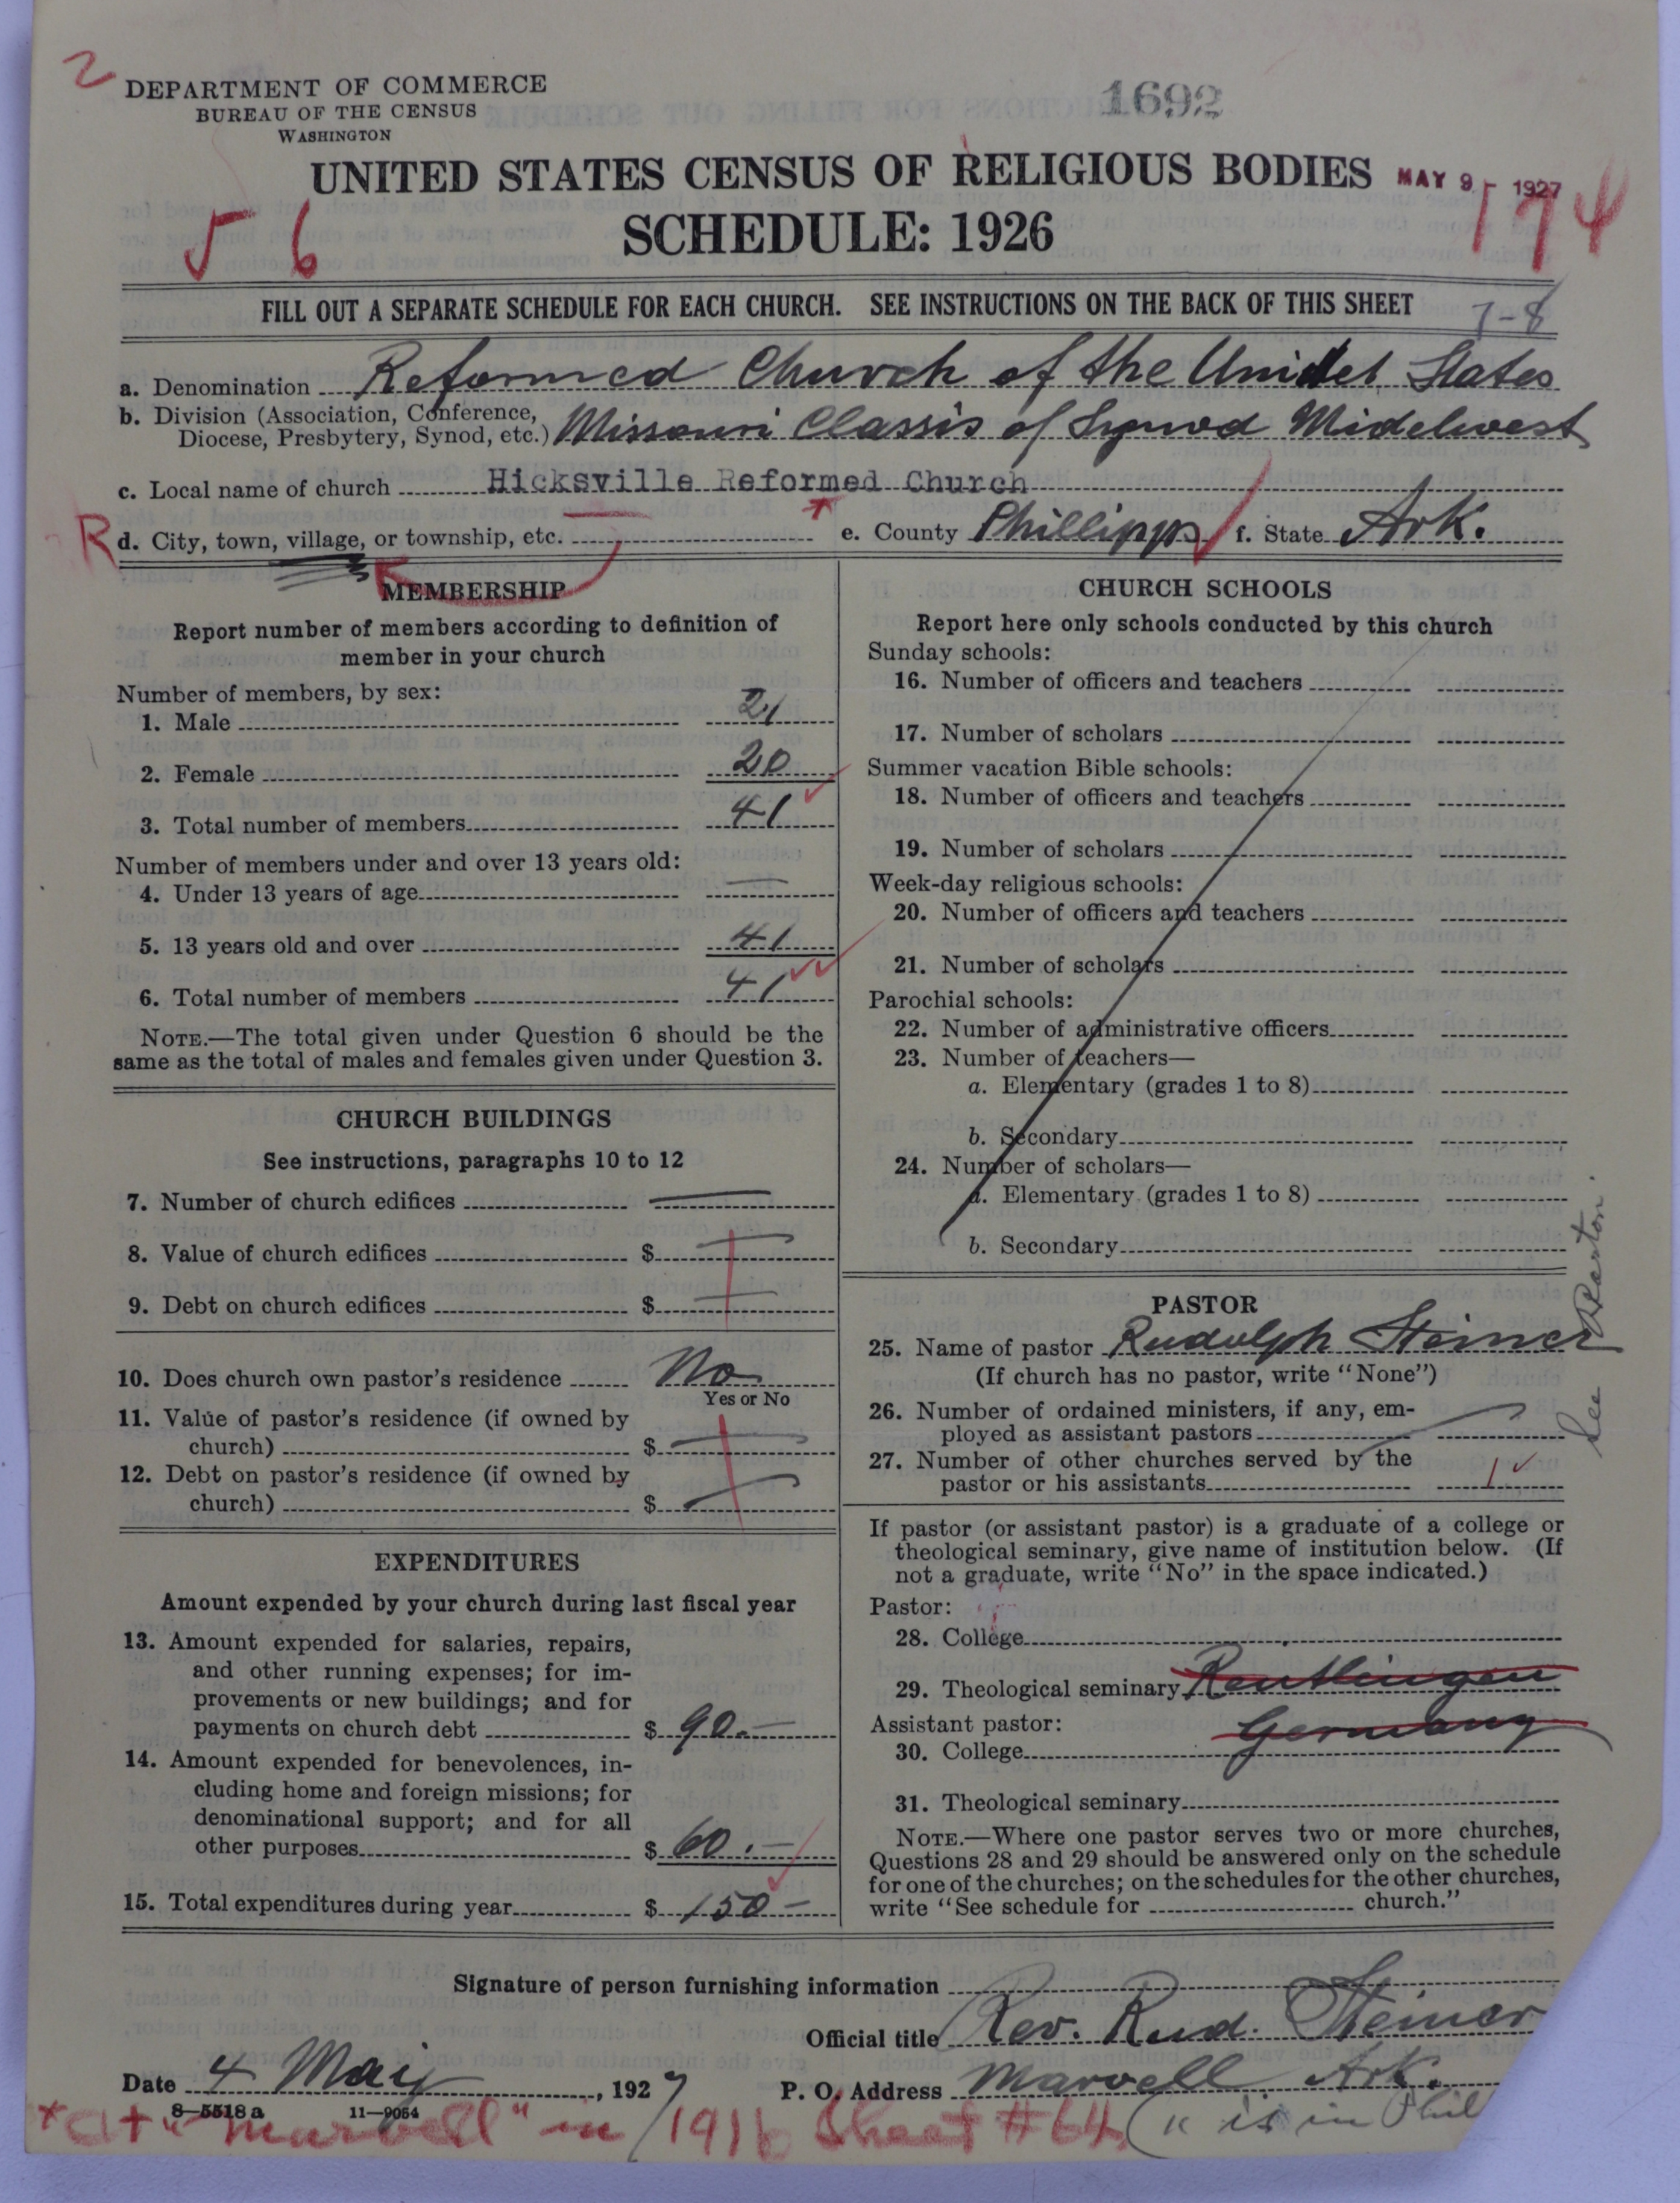 2
DEPARTMENT OF COMMERCE
BUREAU OF THE CENSUS
WASHINGTON
1692
UNITED STATES CENSUS OF RELIGIOUS BODIES
MAY 9 - 1927
SCHEDULE: 1926
56
174
FILL OUT A SEPARATE SCHEDULE FOR EACH CHURCH. SEE INSTRUCTIONS ON THE BACK OF THIS SHEET
7-8
a. Denomination Reformed Church of the United States
b. Division (Association, Conference,
Diocese, Presbytery, Synod, etc.) Missouri Classis of Synod Midelwest
c. Local name of church Hicksville Reformed Church
R d. City, town, village, or township, etc. * e. County Phillipps f. State Ark.
MEMBERSHIP
Report number of members according to definition of
member in your church
Number of members, by sex:
1. Male 21
2. Female 20
3. Total number of members 41
Number of members under and over 13 years old:
4. Under 13 years of age —
5. 13 years old and over 41
6. Total number of members 41
NOTE.—The total given under Question 6 should be the
same as the total of males and females given under Question 3.
CHURCH BUILDINGS
See instructions, paragraphs 10 to 12
7. Number of church edifices —
8. Value of church edifices $ —
9. Debt on church edifices $ —
10. Does church own pastor's residence No
Yes or No
11. Value of pastor's residence (if owned by
church) $ —
12. Debt on pastor's residence (if owned by
church) $ —
EXPENDITURES
Amount expended by your church during last fiscal year
13. Amount expended for salaries, repairs,
and other running expenses; for im-
provements or new buildings; and for
payments on church debt $ 90.—
14. Amount expended for benevolences, in-
cluding home and foreign missions; for
denominational support; and for all
other purposes $ 60.—
15. Total expenditures during year $ 150—
CHURCH SCHOOLS
Report here only schools conducted by this church
Sunday schools:
16. Number of officers and teachers
17. Number of scholars
Summer vacation Bible schools:
18. Number of officers and teachers
19. Number of scholars
Week-day religious schools:
20. Number of officers and teachers
21. Number of scholars
Parochial schools:
22. Number of administrative officers
23. Number of teachers—
a. Elementary (grades 1 to 8)
b. Secondary
24. Number of scholars—
a. Elementary (grades 1 to 8)
b. Secondary
PASTOR
25. Name of pastor Rudolph Steiner
(If church has no pastor, write "None")
26. Number of ordained ministers, if any, em-
ployed as assistant pastors —
27. Number of other churches served by the
pastor or his assistants 1
See
If pastor (or assistant pastor) is a graduate of a college or
theological seminary, give name of institution below. (If
not a graduate, write "No" in the space indicated.)
Pastor:
28. College
29. Theological seminary Reutlingen
Assistant pastor: Germany
30. College
31. Theological seminary
NOTE.—Where one pastor serves two or more churches,
Questions 28 and 29 should be answered only on the schedule
for one of the churches; on the schedules for the other churches,
write "See schedule for church."
Signature of person furnishing information
Official title Rev. Rud. Steiner
Date 4 Mai, 1927 P. O. Address Marvell Ark.
8—5518 a 11—9054
"Marvell" in 1916 Sheet #64 (it is in Phil